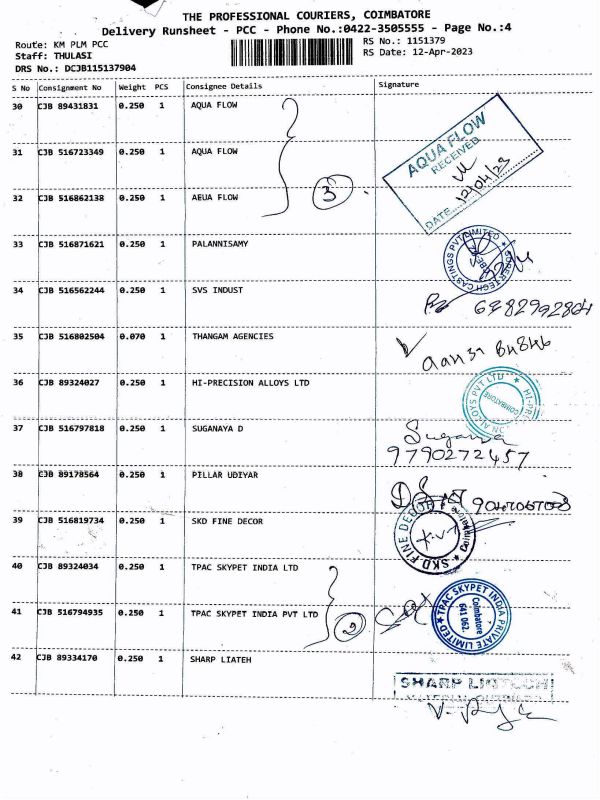 THE PROFESSIONAL COURIERS, COIMBATORE
Delivery Runsheet - PCC - Phone No.:0422-3505555 - Page No.:4
Route: KM PLM PCC
RS No.: 1151379
Staff: THULASI
RS Date: 12-Apr-2023
DRS No.: DCJB115137904
S No Consignment No Weight PCS Consignee Details Signature
30 CJB 89431831 0.250 1 AQUA FLOW
31 CJB 516723349 0.250 1 AQUA FLOW
32 CJB 516862138 0.250 1 AEUA FLOW
3
AQUA FLOW
RECEIVED
DATE 12/04/23
33 CJB 516871621 0.250 1 PALANNISAMY
SUPER TECH CASTINGS PVT LIMITED
34 CJB 516562244 0.250 1 SVS INDUST
35 CJB 516802504 0.070 1 THANGAM AGENCIES
36 CJB 89324027 0.250 1 HI-PRECISION ALLOYS LTD
COIMBATORE
37 CJB 516797818 0.250 1 SUGANAYA D
9790272457
38 CJB 89178564 0.250 1 PILLAR UDIYAR
39 CJB 516819734 0.250 1 SKD FINE DECOR
SKD FINE DECOR
40 CJB 89324034 0.250 1 TPAC SKYPET INDIA LTD
41 CJB 516794935 0.250 1 TPAC SKYPET INDIA PVT LTD
2
TPAC SKYPET INDIA PRIVATE LIMITED
Coimbatore
641 062.
42 CJB 89334170 0.250 1 SHARP LIATEH
SHARP LIATECH